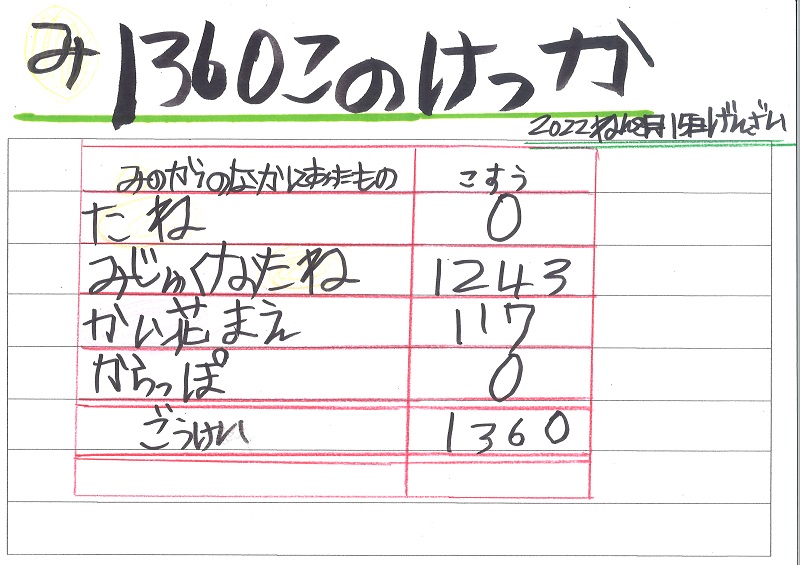 み1360このけっか
2022ねん8月15日げんざい
みのからのなかにあったもの こすう
たね 0
みじゅくなたね 1243
かい花まえ 117
からっぽ 0
ごうけい 1360